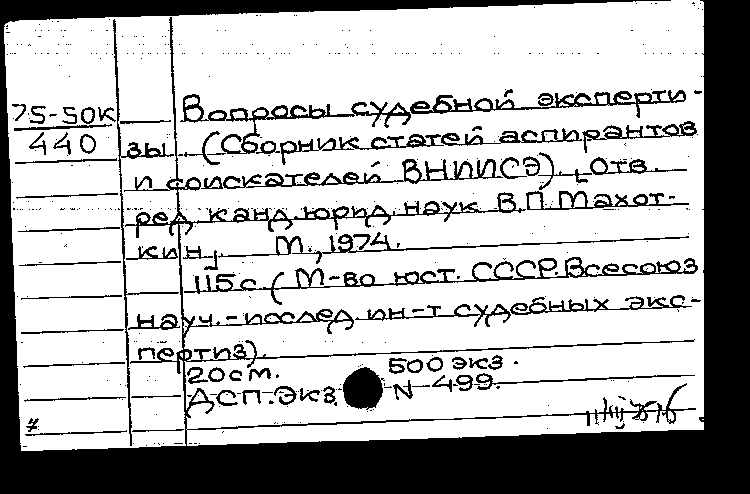 75-50К
440
Вопросы судебной эксперти-
зы. (Сборник статей аспирантов
и соискателей ВНИИСЭ). [Отв.
ред. канд. юрид. наук В.П. Махот-
кин]. М., 1974.
115 с. (М-во юст. СССР. Всесоюз.
науч.-исслед. ин-т судебных экс-
пертиз).
20 см. 500 экз.
ДСП. Экз. N 499.